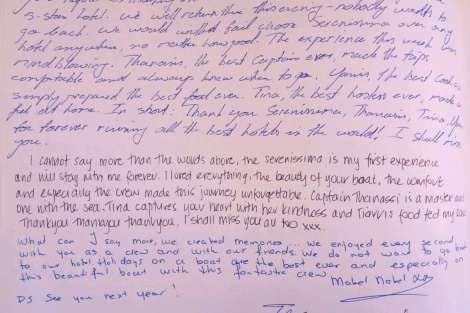 5-star hotel. We will return this evening - nobody wants to
go back. We would instead choose Serenissima over any
hotel anywhere, no matter how good. The experience this week was
mind blowing. Thanassi, the best Captain ever, made the trip
comfortable and always knew when to go. the best Cook
simply prepared the best food ever. Tina, the best hostess ever, made
feel at home. In short: Thank you Serenissima, Thanassi, Tina,
for forever ruining all the best hotels in the world! I shall miss
you.
I cannot say more than the words above, the serenissima is my first experience
and will stay with me forever. I loved everything, the beauty of your boat, the comfort
and especially the crew made this journey unforgettable. Captain Thanassi is a master and
one with the sea. Tina captures your heart with her kindness and food fed my
Thankyou thankyou thankyou. I shall miss you all too xxx.
What can I say more, we created memories... we enjoyed every second
with you as a crew and with our friends. We do not want to go back
to our hotel. Holidays on a boat are the best ever and especially on
this beautiful boat with this fantastic crew. Mabel Mabel
PS See you next year!